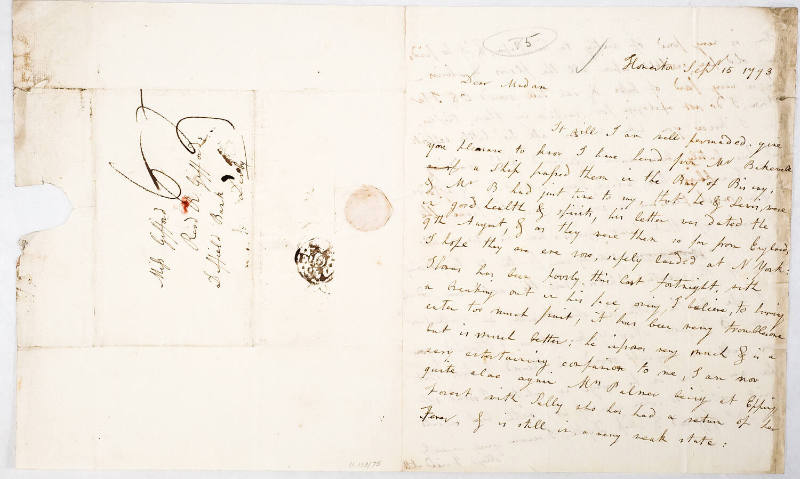 Miss Giffard
Revd Dr Giffards
Duffield Bank
85
Homerton Sept 15 1793
Dear Madam
It will I am well persuaded give
you pleasure to know I have heard from Mr Bakewell
a Ship passed them in the Bay of Biscay,
& Mr B had just time to say, that he & Lewis were
in good health & spirits, his letter was dated the
9th August, & as they were then so far from England,
I hope they are ere now, safely landed at N York:
Thomas has been poorly this last fortnight, with
a breaking out in his face owing, I believe, to having
eaten too much fruit, it has been very troublesome
but is much better: he improves very much & is a
very entertaining companion to me, I am now
quite alone again Mrs Palmer being at Epping
Forest with Sally who has had a return of her
Fever, & is still in a very weak state: